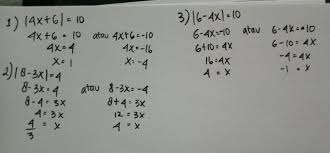 1) |4x+6| = 10
4x+6 = 10 atau 4x+6 = -10
4x = 4 4x = -16
x = 1 x = -4
2) |8-3x| = 4
8-3x = 4 atau 8-3x = -4
8-4 = 3x 8+4 = 3x
4 = 3x 12 = 3x
4/3 = x 4 = x
3) |6-4x| = 10
6-4x = -10 atau 6-4x = 10
6+10 = 4x 6-10 = 4x
16 = 4x -4 = 4x
4 = x -1 = x